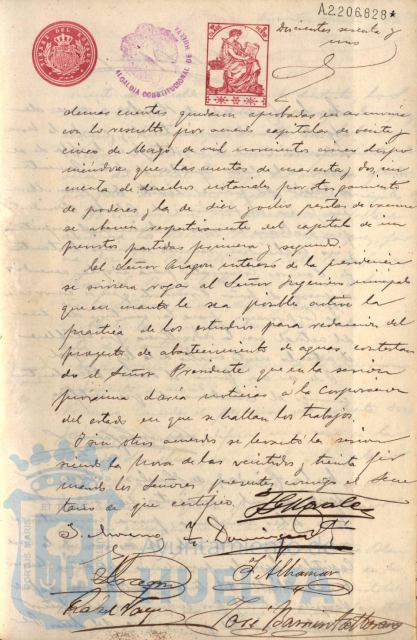 A2206,828*
Doscientos sesenta y
uno
TIMBRE DEL ESTADO
ALCALDIA CONSTITUCIONAL DE HUELVA
demas cuentas quedaron aprobadas en armonia
con lo resuelto por acuerdo capitular de veinte y
cinco de Mayo de mil novecientos cinco dispo
niéndose que las cuentas de cuarenta y dos, en
cuenta de derechos notariales por otorgamiento
de poderes y la de diez y ocho pesetas de
se abonen respectivamente del capitulo de im
previstos partidas primera y segunda.
El Señor Aragon interesó de la presidencia
se sirviera rogar al Señor Ingeniero municipal
que en cuanto le sea posible active la
practica de los estudios para redaccion del
proyecto de abastecimiento de aguas, contestan
do el Señor Presidente que en la sesion
proxima daria noticias á la Corporacion
del estado en que se hallan los trabajos.
Y sin otros acuerdos se levantó la sesion
siendo la hora de las veintidos y treinta fir
mando los Señores presentes conmigo el Secre
tario de que certifico.
F. Dominguez
Aragon
F. Alhamar
José Barrientos
PORTUS MARIS
Ayuntamiento de
HUELVA